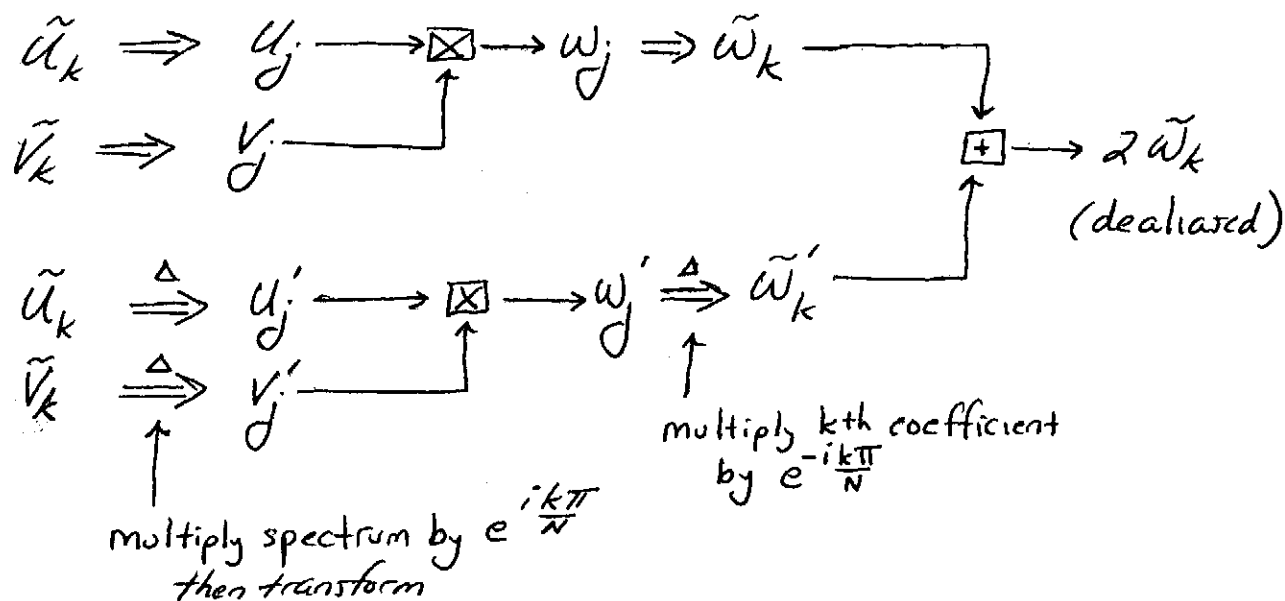 ũ_k ⟹ u_j → ⊠ → w_j ⟹ w̃_k
ṽ_k ⟹ v_j
+ → 2 w̃_k
(dealiased)
ũ_k ⟹^Δ u_j' → ⊠ → w_j' ⟹^Δ w̃_k'
ṽ_k ⟹^Δ v_j'
multiply kth coefficient
by e^{-ikπ/N}
multiply spectrum by e^{ikπ/N}
then transform